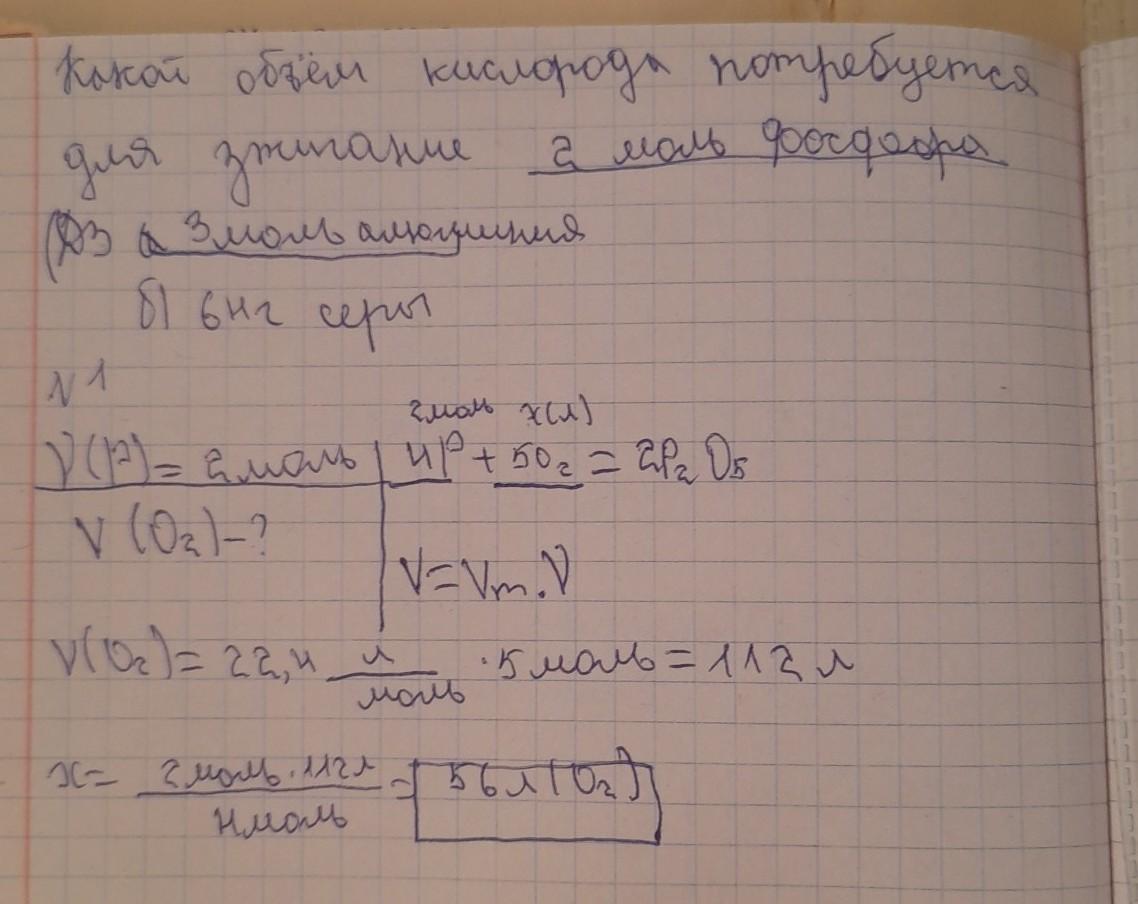 Какой объём кислорода потребуется
для зжигание 2 моль фосфора
ДЗ а 3 моль алюминия
б) 64г серы
N 1
2моль x(л)
V(P)= 2 моль 4P + 5O₂ = 2P₂O₅
V(O₂)-?
V=Vm.V
V(O₂)= 22,4 л/моль ·5 моль = 112 л
x= 2 моль·112л/4моль = 56 л (O₂)